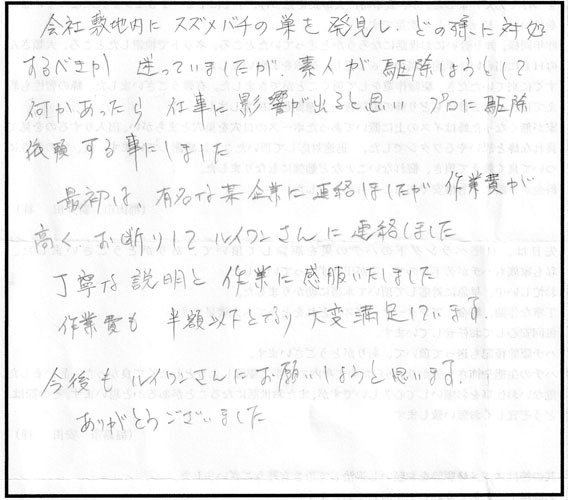 会社敷地内にスズメバチの巣を発見し、どの様に対処
するべきか 迷っていましたが、素人が駆除しようとして
何かあったら 仕事に影響が出ると思い プロに駆除
依頼する事にしました
最初は、有名な某企業に連絡しましたが 作業費が
高く お断りして ルイワンさんに連絡しました
丁寧な説明と 作業に感服いたしました
作業費も 半額以下となり 大変満足しています。
今後も ルイワンさんにお願いしようと思います。
ありがとうございました